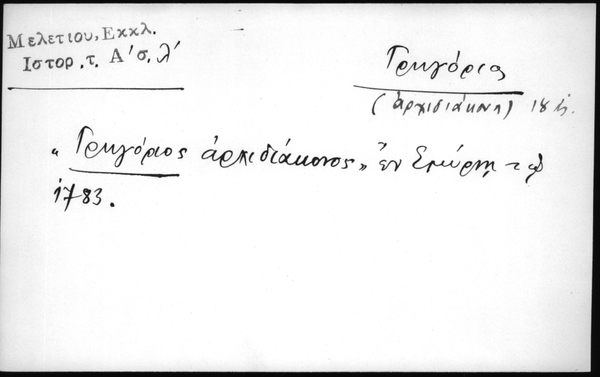 Μελετιου, Εκκλ.
Ιστορ. τ. Α' σ. λ'
Γρηγόριος
(ἀρχιδιάκονος) 18
"Γρηγόριος ἀρχιδιάκονος", ἐν Σμύρνῃ τῷ
1783.